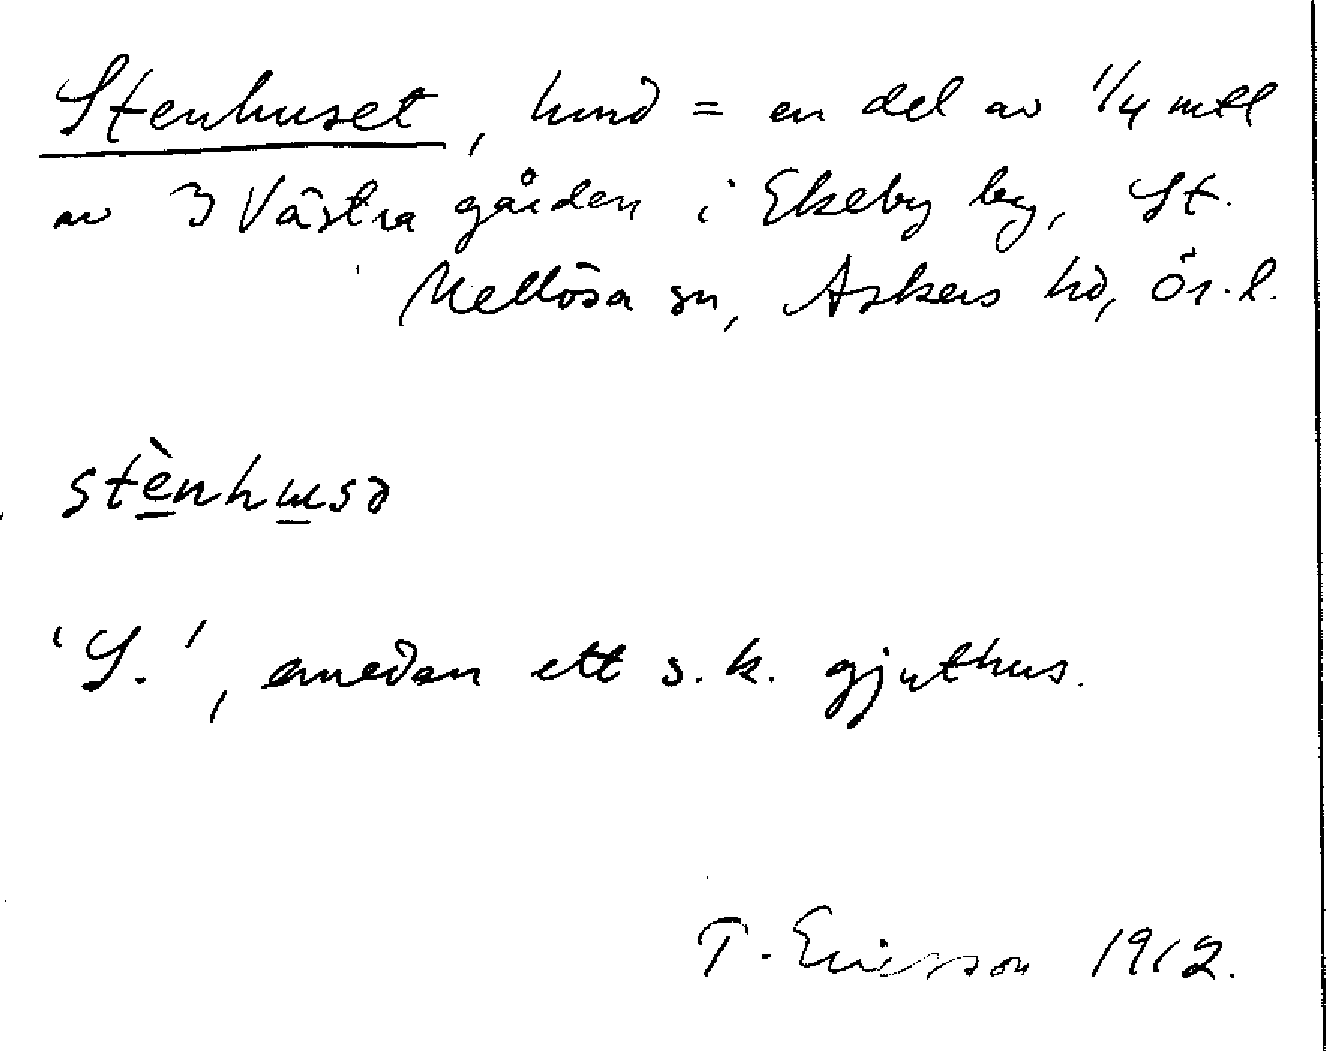 Stenhuset, hmd = en del av 1/4 mtl
av 3 Västra gården i Ekeby by, St.
Mellösa sn, Askers hd, Ör. l.
stènhusə
'S.', emedan ett s.k. gjuthus.
T. Ericsson 1912.